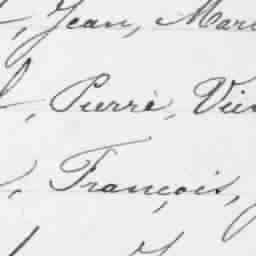 , Jean, Mari
, Pierre, Vin
, François,